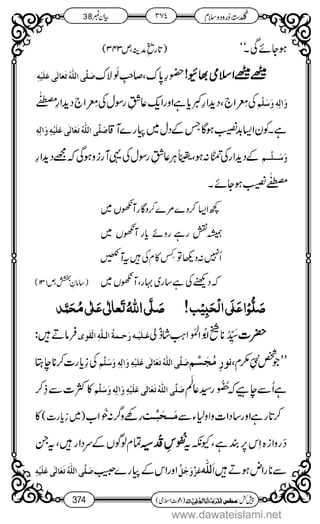 گلدستۂ درود وسلام ٣٧٤ بیان نمبر 38
ہوجائے گی۔‘‘ (تاریخِ مدینہ، ص ٣٤٣)
میٹھے میٹھے اسلامی بھائیو! حضورِ پاک، صاحبِ لَولاک صَلَّی اللہُ تَعَالٰی عَلَیْہِ
وَاٰلِہٖ وَسَلَّم کی معراج، دیدارِ ربِّ اکبر ہے اور ایک عاشقِ رسول کی معراج دیدارِ مصطفٰے
ہے۔ کون ایسا بدنصیب ہوگا جس کے دل میں پیارے آقا صَلَّی اللہُ تَعَالٰی عَلَیْہِ وَاٰلِہٖ
وَسَلَّم کے دیدار کی تمنّا نہ ہو، یقیناً ہر عاشقِ رسول کی یہی آرزو ہوگی کہ مجھے دیدارِ
مصطفٰے نصیب ہوجائے۔
کچھ ایسا کردے مرے کردگار آنکھوں میں
ہمیشہ نقش رہے روئے یار آنکھوں میں
اُنہیں نہ دیکھا تو کس کام کی ہیں یہ آنکھیں
کہ دیکھنے کی ہے ساری بہار آنکھوں میں (سامانِ بخشش، ص ١٣)
صَلُّوْا عَلَی الْحَبِیْب! صَلَّی اللہُ تَعَالٰی عَلٰی مُحَمَّد
حضرت سَیِّدُنا شیخ ابُوالمواہب شاذلی عَلَیْہِ رَحمَۃُ اللہِ القَوِی فرماتے ہیں:
’’جو شخص نبیِّ مکرم، نورِ مُجَسَّم صَلَّی اللہُ تَعَالٰی عَلَیْہِ وَاٰلِہٖ وَسَلَّم کی زیارت کرنا چاہتا
ہے اُسے چاہیے کہ حُضُور سیدِ عالم صَلَّی اللہُ تَعَالٰی عَلَیْہِ وَاٰلِہٖ وَسَلَّم کا کثرت سے ذکر
کرتا رہے اور سادات و اولیاء سے مَحَبَّت رکھے وگرنہ خواب (میں زیارت) کا
دروازہ اس پر بند ہے، کیونکہ یہ نُفُوسِ قدسیہ تمام لوگوں کے سردار ہیں، یہ جن
سے ناراض ہوتے ہیں اللہ عَزَّوَجَلَّ اور اس کے پیارے حبیب صَلَّی اللہُ تَعَالٰی عَلَیْہِ
پیش کش: مجلس المدینۃ العلمیۃ (دعوتِ اسلامی) 374
www.dawateislami.net